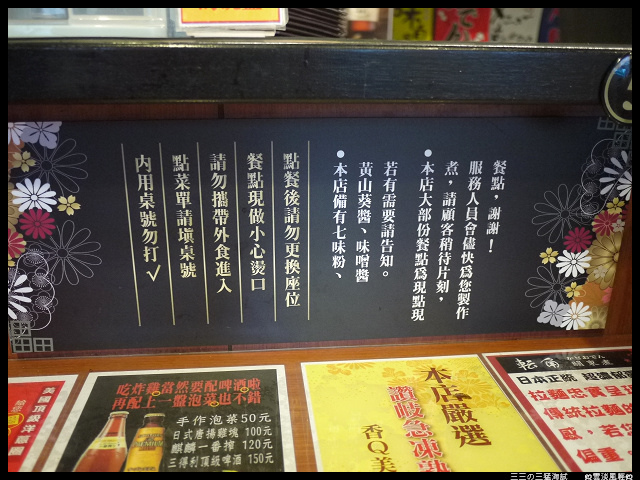 ●本店大部份餐點為現點現
煮，請顧客稍待片刻，
服務人員會儘快為您製作
餐點，謝謝！
●本店備有七味粉、
黃山葵醬、味噌醬
若有需要請告知。
點餐後請勿更換座位
餐點現做小心燙口
請勿攜帶外食進入
點菜單請填桌號
內用桌號勿打✓
美國頂級洋蔥圈
吃炸雞當然要配啤酒啦
再配上一盤泡菜也不錯
手作泡菜50元
日式唐揚雞塊 100元
麒麟一番搾 120元
三得利頂級啤酒 150元
本店嚴選
讚岐急凍熟
香Q美
日本正宗
拉麵忠實呈
傳統拉麵
感，若您
偏重
三三の三猛海賊
雲淡風輕